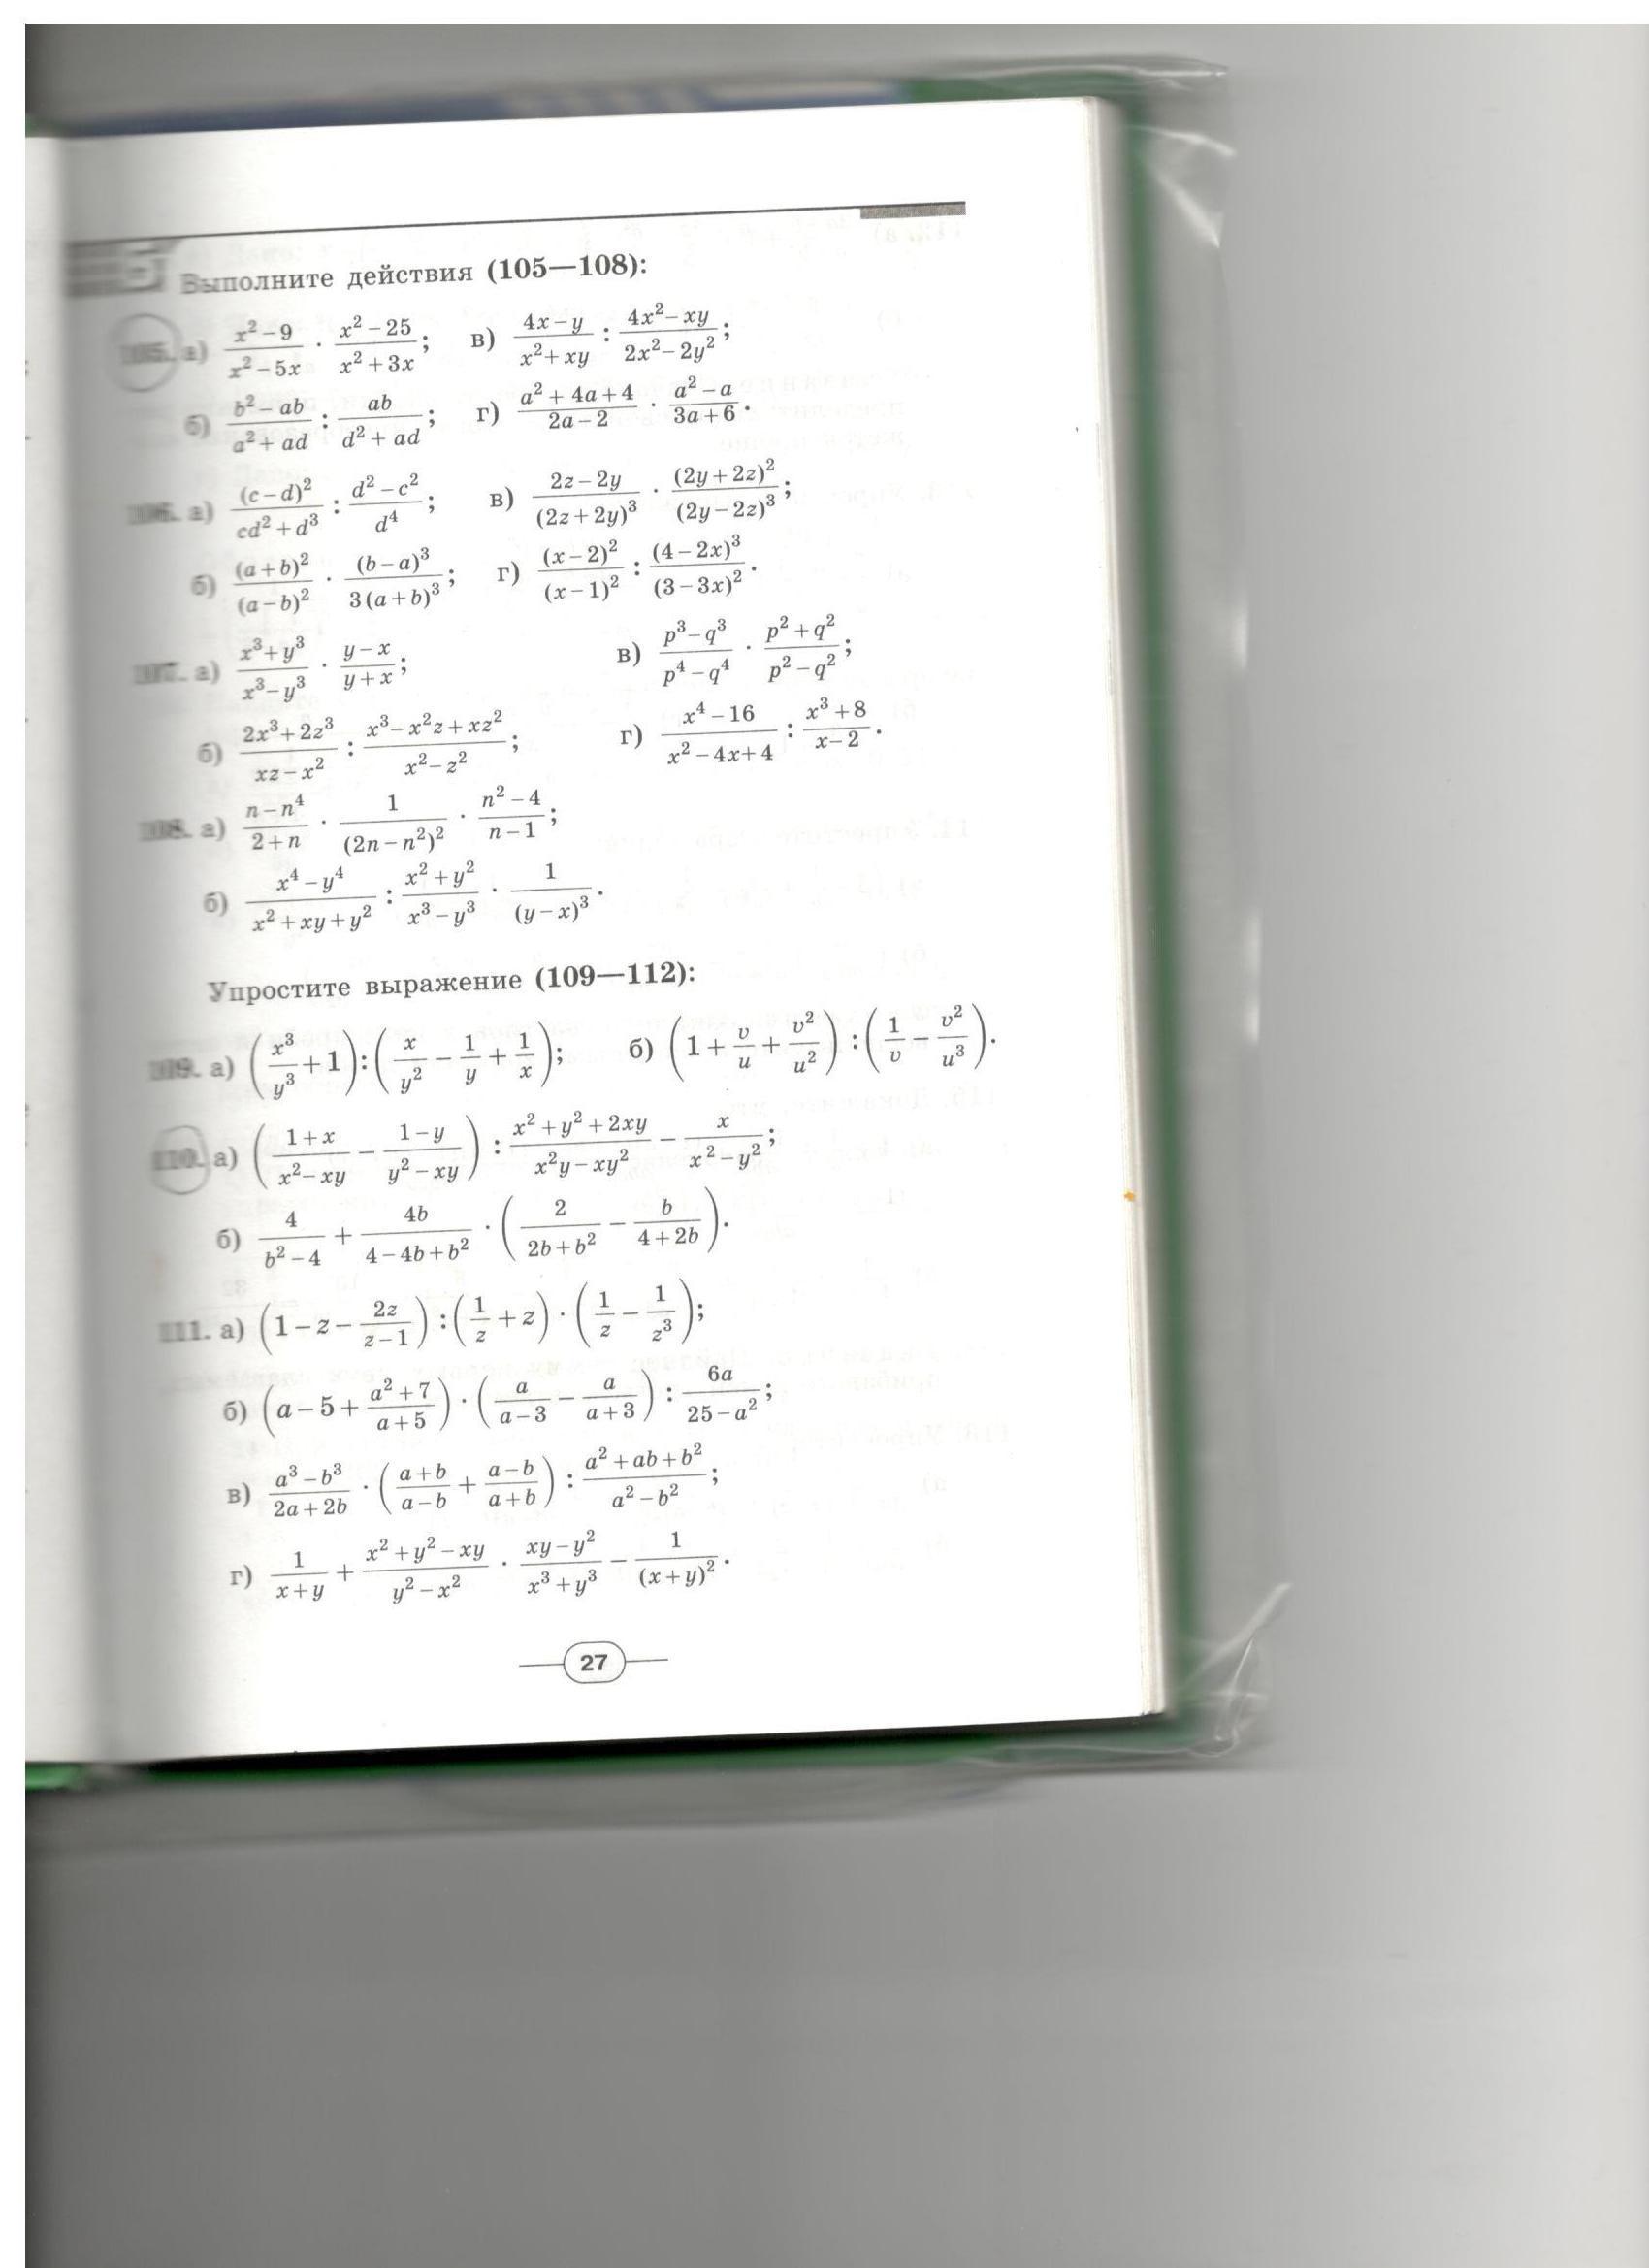 Б
Выполните действия (105—108):
105. а) \frac{x^2-9}{x^2-5x} · \frac{x^2-25}{x^2+3x}; в) \frac{4x-y}{x^2+xy} : \frac{4x^2-xy}{2x^2-2y^2};
б) \frac{b^2-ab}{a^2+ad} : \frac{ab}{d^2+ad}; г) \frac{a^2+4a+4}{2a-2} · \frac{a^2-a}{3a+6}.
106. а) \frac{(c-d)^2}{cd^2+d^3} : \frac{d^2-c^2}{d^4}; в) \frac{2z-2y}{(2z+2y)^3} · \frac{(2y+2z)^2}{(2y-2z)^3};
б) \frac{(a+b)^2}{(a-b)^2} · \frac{(b-a)^3}{3(a+b)^3}; г) \frac{(x-2)^2}{(x-1)^2} : \frac{(4-2x)^3}{(3-3x)^2}.
107. а) \frac{x^3+y^3}{x^3-y^3} · \frac{y-x}{y+x}; в) \frac{p^3-q^3}{p^4-q^4} · \frac{p^2+q^2}{p^2-q^2};
б) \frac{2x^3+2z^3}{xz-x^2} : \frac{x^3-x^2z+xz^2}{x^2-z^2}; г) \frac{x^4-16}{x^2-4x+4} : \frac{x^3+8}{x-2}.
108. а) \frac{n-n^4}{2+n} · \frac{1}{(2n-n^2)^2} · \frac{n^2-4}{n-1};
б) \frac{x^4-y^4}{x^2+xy+y^2} : \frac{x^2+y^2}{x^3-y^3} · \frac{1}{(y-x)^3}.
Упростите выражение (109—112):
109. а) (\frac{x^3}{y^3}+1):(\frac{x}{y^2}-\frac{1}{y}+\frac{1}{x}); б) (1+\frac{v}{u}+\frac{v^2}{u^2}):(\frac{1}{v}-\frac{v^2}{u^3}).
110. а) (\frac{1+x}{x^2-xy}-\frac{1-y}{y^2-xy}) : \frac{x^2+y^2+2xy}{x^2y-xy^2} - \frac{x}{x^2-y^2};
б) \frac{4}{b^2-4} + \frac{4b}{4-4b+b^2} · (\frac{2}{2b+b^2}-\frac{b}{4+2b}).
111. а) (1-z-\frac{2z}{z-1}):(\frac{1}{z}+z)·(\frac{1}{z}-\frac{1}{z^3});
б) (a-5+\frac{a^2+7}{a+5})·(\frac{a}{a-3}-\frac{a}{a+3}):\frac{6a}{25-a^2};
в) \frac{a^3-b^3}{2a+2b}·(\frac{a+b}{a-b}+\frac{a-b}{a+b}):\frac{a^2+ab+b^2}{a^2-b^2};
г) \frac{1}{x+y}+\frac{x^2+y^2-xy}{y^2-x^2}·\frac{xy-y^2}{x^3+y^3}-\frac{1}{(x+y)^2}.
27